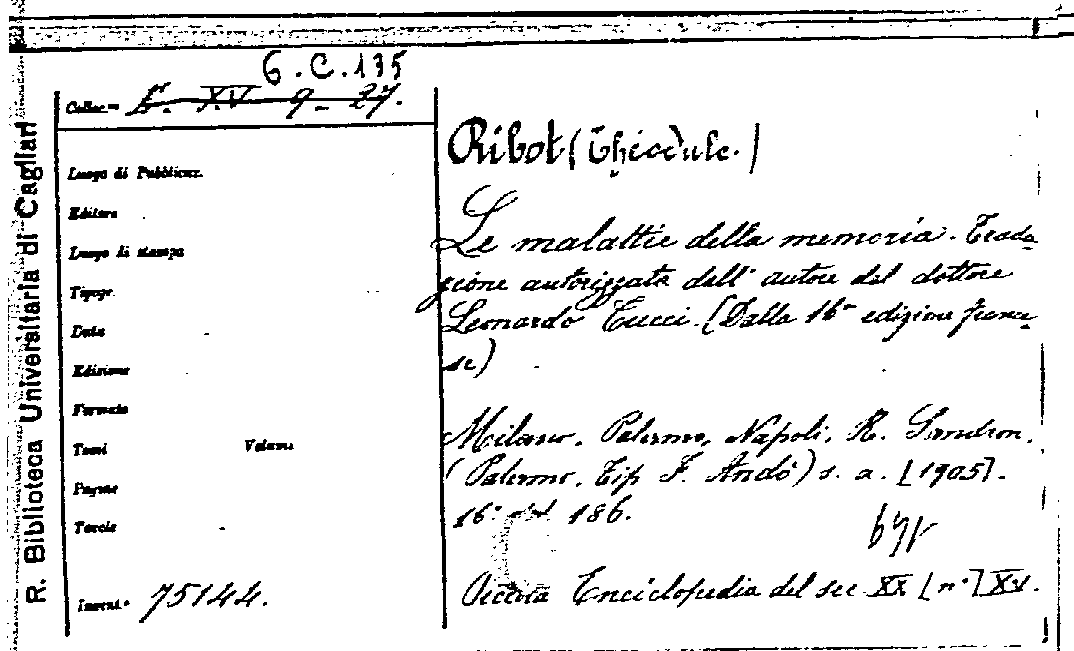 R. Biblioteca Universitaria di Cagliari
6.C.135
Colloc.ne XV 9-27.
Luogo di Pubblicaz.
Editore
Luogo di stampa
Tipogr.
Data
Edizione
Formato
Tomi Volume
Pagine
Tavole
Invent.o 75144.
Ribot (Théodule.)
Le malattie della memoria. Tradu-
zione autorizzata dall' autore del dottore
Leonardo Tucci. (Dalla 16a edizione france-
se)
Milano, Palermo, Napoli, R. Sandron.
(Palermo, Tip F. Andò) s. a. [1905].
16° 186.
Piccola Enciclopedia del sec XX [n°] XV.